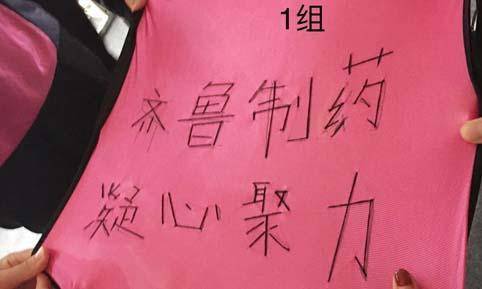 1组
齐鲁制药
凝心聚力